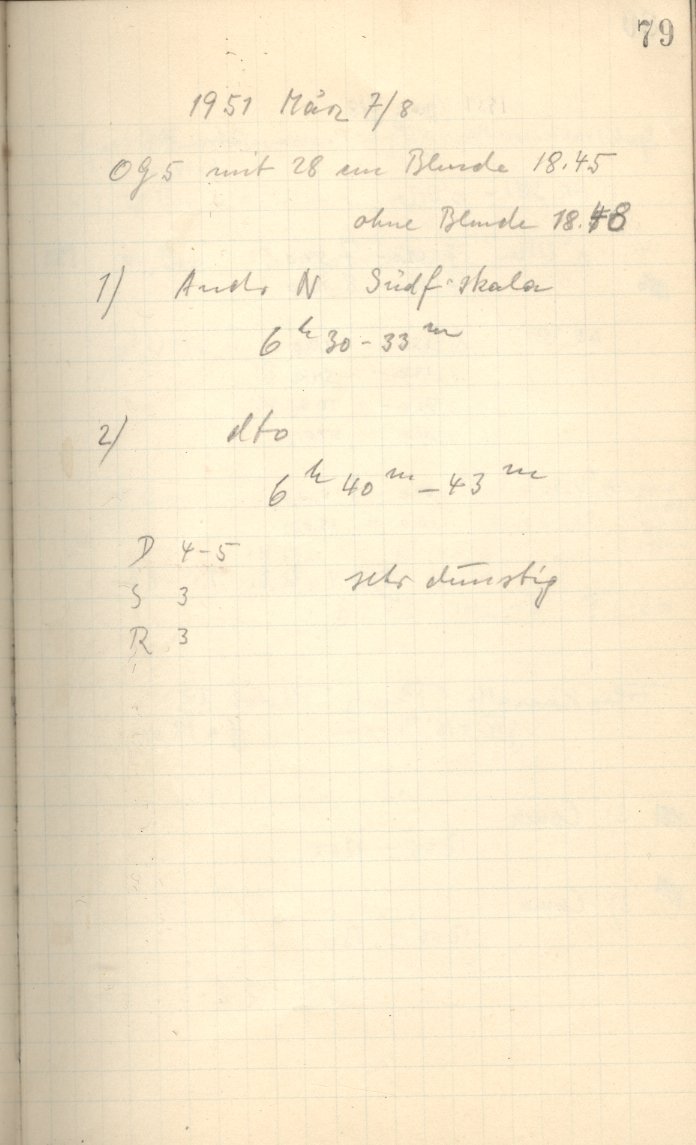 79
1951 März 7/8
OG5 mit 28 cm Blende 18.45
ohne Blende 18.48
1) Andr N Südf-skala
6 h 30 - 33 m
2) dto
6 h 40 m - 43 m
D 4-5
S 3 sehr dunstig
R 3